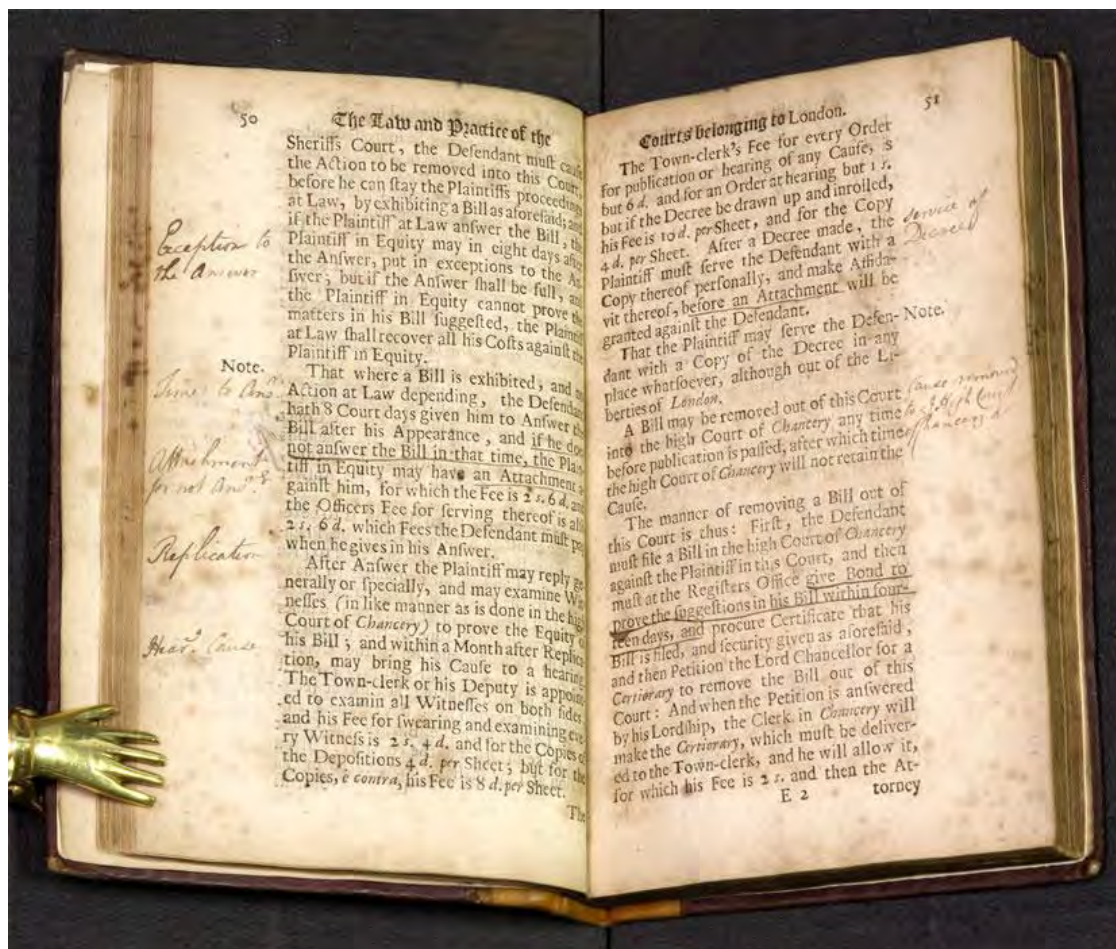 50
The Law and Practice of the
Sheriffs Court, the Defendant muſt cauſe
the Action to be removed into this Court,
before he can ſtay the Plaintiffs proceedings
at Law, by exhibiting a Bill as aforeſaid; and
if the Plaintiff at Law anſwer the Bill, the
Plaintiff in Equity may in eight days after
the Anſwer, put in exceptions to the An-
ſwer; but if the Anſwer ſhall be full, and
the Plaintiff in Equity cannot prove the
matters in his Bill ſuggeſted, the Plaintiff
at Law ſhall recover all his Coſts againſt the
Plaintiff in Equity.
That where a Bill is exhibited, and no
Action at Law depending, the Defendant
hath 8 Court days given him to Anſwer the
Bill after his Appearance, and if he does
not anſwer the Bill in that time, the Plain-
tiff in Equity may have an Attachment a-
gainſt him, for which the Fee is 2 s. 6 d. and
the Officers Fee for ſerving thereof is alſo
2 s. 6 d. which Fees the Defendant muſt pay
when he gives in his Anſwer.
After Anſwer the Plaintiff may reply ge-
nerally or ſpecially, and may examine Wit-
neſſes (in like manner as is done in the high
Court of Chancery) to prove the Equity of
his Bill; and within a Month after Replica-
tion, may bring his Cauſe to a hearing.
The Town-clerk or his Deputy is appoint-
ed to examin all Witneſſes on both ſides,
and his Fee for ſwearing and examining eve-
ry Witneſs is 2 s. 4 d. and for the Copies of
the Depoſitions 4 d. per Sheet; but for the
Copies, è contra, his Fee is 8 d. per Sheet.
The
Exception to
the Answer
Note.
Time to Ansr.
Attachment
for not Ansr.
Replication
Hear.g Cause
51
Courts belonging to London.
The Town-clerk's Fee for every Order
for publication or hearing of any Cauſe, is
but 6 d. and for an Order at hearing but 1 s.
but if the Decree be drawn up and inrolled,
his Fee is 10 d. per Sheet, and for the Copy
4 d. per Sheet. After a Decree made, the
Plaintiff muſt ſerve the Defendant with a
Copy thereof perſonally, and make Affida-
vit thereof, before an Attachment will be
granted againſt the Defendant.
That the Plaintiff may ſerve the Defen-
dant with a Copy of the Decree in any
place whatſoever, although out of the Li-
berties of London.
A Bill may be removed out of this Court
into the high Court of Chancery any time
before publication is paſſed, after which time
the high Court of Chancery will not retain the
Cauſe.
The manner of removing a Bill out of
this Court is thus: Firſt, the Defendant
muſt file a Bill in the high Court of Chancery
againſt the Plaintiff in this Court, and then
muſt at the Regiſters Office give Bond to
prove the ſuggeſtions in his Bill within four-
teen days, and procure Certificate that his
Bill is filed, and ſecurity given as aforeſaid,
and then Petition the Lord Chancellor for a
Certiorary to remove the Bill out of this
Court: And when the Petition is anſwered
by his Lordſhip, the Clerk in Chancery will
make the Certiorary, which muſt be deliver-
ed to the Town-clerk, and he will allow it,
for which his Fee is 2 s. and then the At-
E 2
torney
Service of
Decree
Note.
Cause removed
to High Court
of Chancery